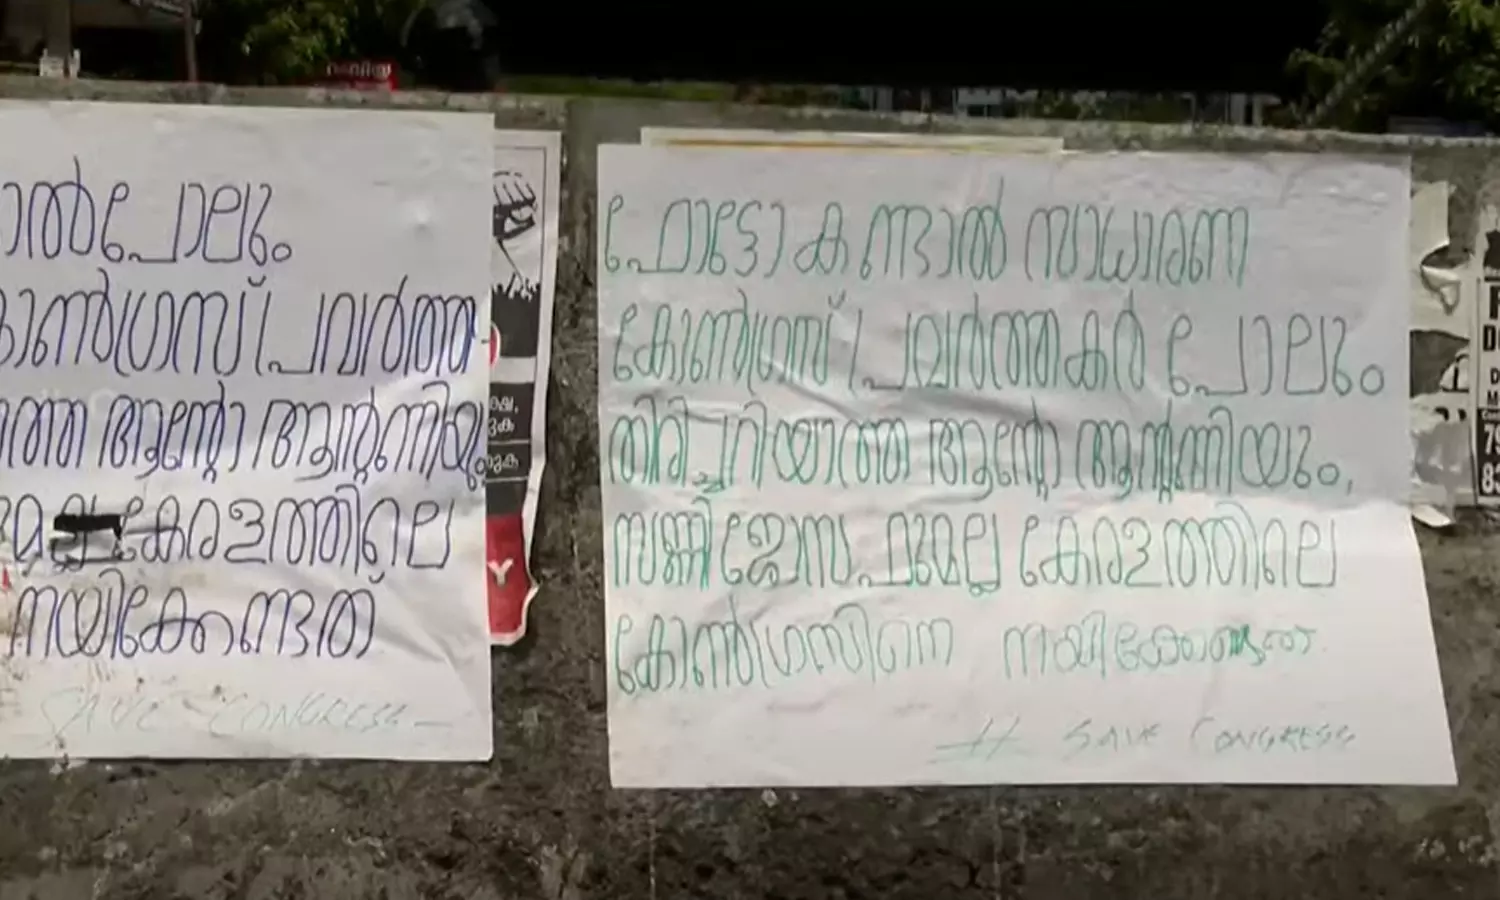 ാൽപോലും
കോൺഗ്രസ് പ്രവർത്ത
ത്ത ആന്റോ ആന്റണിയും
കേരളത്തിലെ
നയിക്കേണ്ടത്
SAVE CONGRESS
ഫോട്ടോ കണ്ടാൽ സാധാരണ
കോൺഗ്രസ് പ്രവർത്തകർ പോലും
തിരിച്ചറിയാത്ത ആന്റോ ആന്റണിയും,
സണ്ണി ജോസഫുമല്ല കേരളത്തിലെ
കോൺഗ്രസിനെ നയിക്കേണ്ടത്
# SAVE CONGRESS
Y
79
83